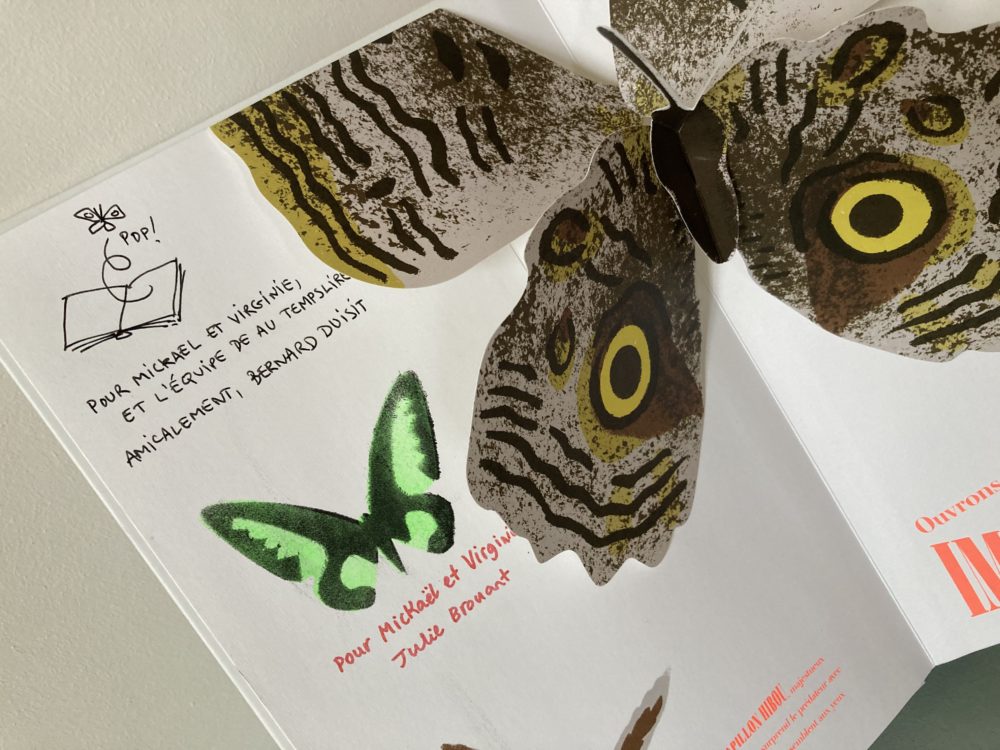 POP!
POUR MICKAEL ET VIRGINIE,
ET L'ÉQUIPE DE AU TEMPSLIRE
AMICALEMENT, BERNARD DUISIT
pour Mickaël et Virginie
Julie Brouant
Ouvrons
PAPILLON HIBOU, majestueux
surprend le prédateur avec
semblent aux yeux